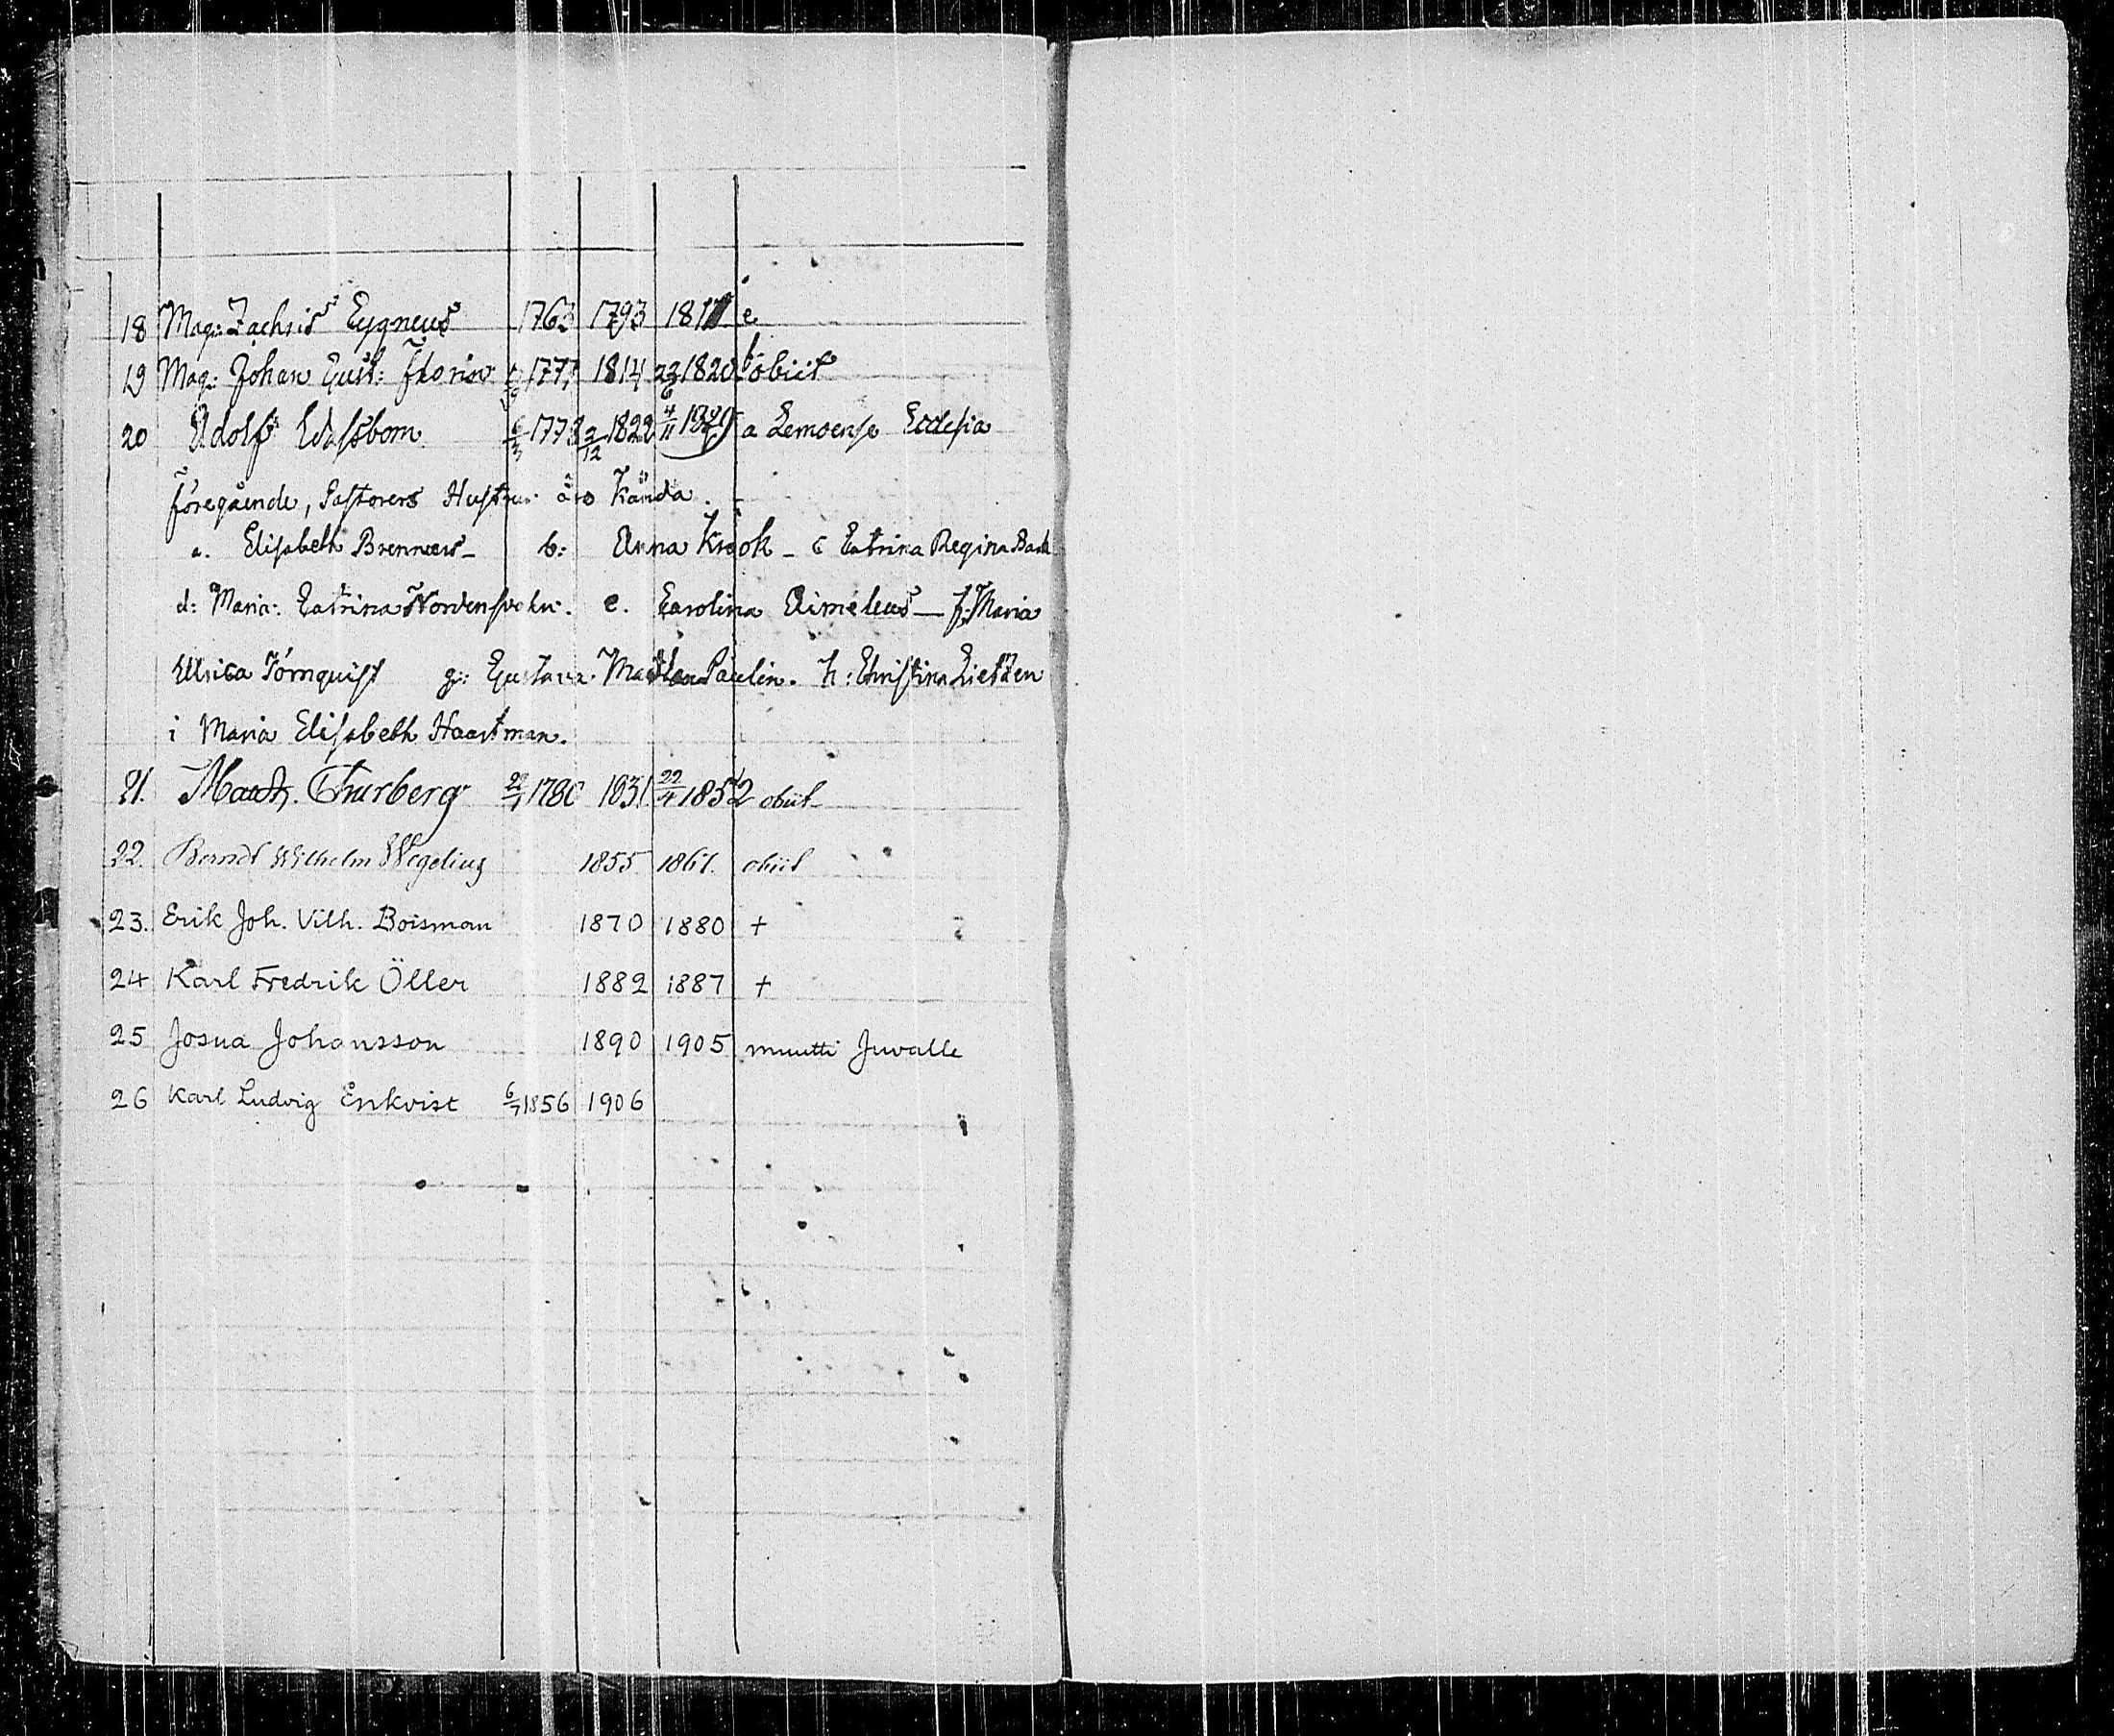 18 Mag: Zachris Cygneus 1763 1793 181 e
19 Mag: Johan Gust: Florin 1777 1814 23/6 1820 f obiit
20 Adolf 6/3 1778 2/12 1822 4/11 1829 a Lemoense Ecclesia
Föregående, Pastorers Hustrur äro Kända.
a. Elisabeth Brenner – b: Anna Krook – c Catrina Regina Back
d: Maria: Catrina Nordenswahn. e. Carolina Aimeleus — f: Maria
Ulrica Törnquist g: Gustava Paulin. h: Christina Lietzen
i Maria Elisabeth Haartman.
21. Math. Thurberg 1780 1831 22/4 1852 obiit
22. Berndt Wilhelm Wegelius 1855 1861. obiit
23. Erik Joh. Vilh. Boisman 1870 1880 +
24 Karl Fredrik Öller 1882 1887 +
25 Josua Johansson 1890 1905 muutti Juvalle
26 Karl Ludvig Enkvist 6/7 1856 1906